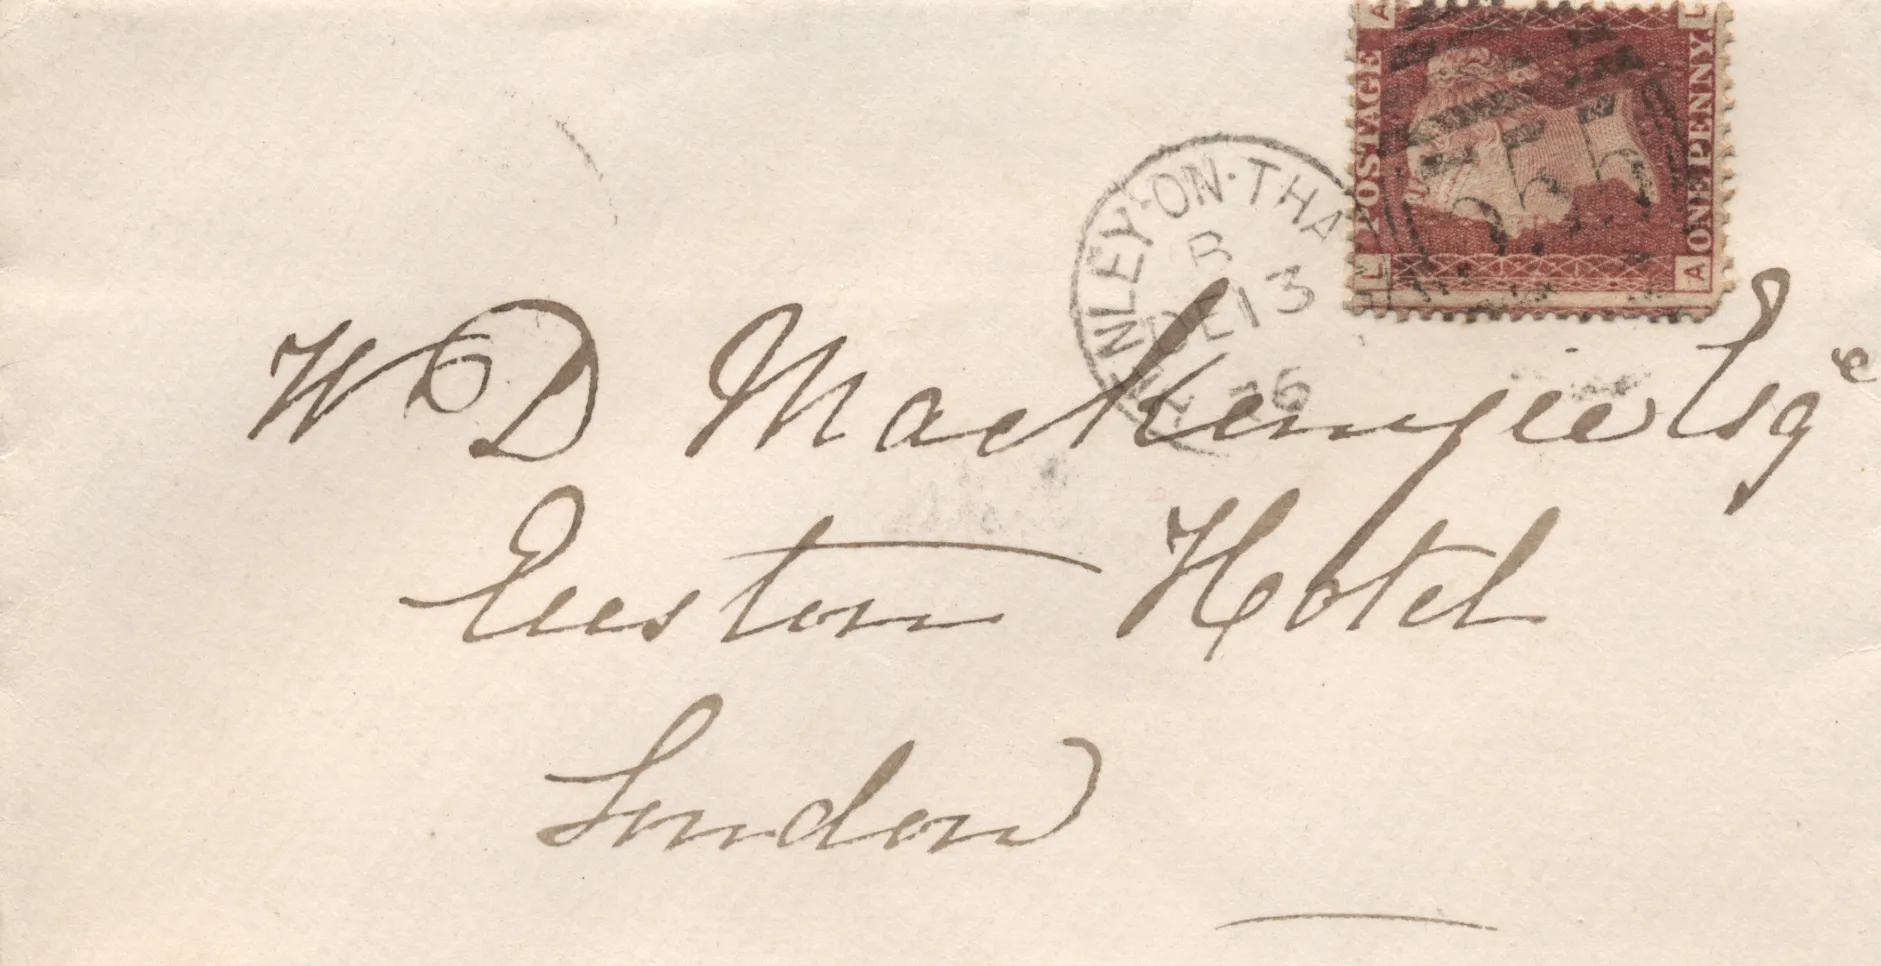 POSTAGE
ONE PENNY
A L
L A
HENLEY-ON-THA
B
DE 13
76
W D Mackenzie Esqe
Euston Hotel
London